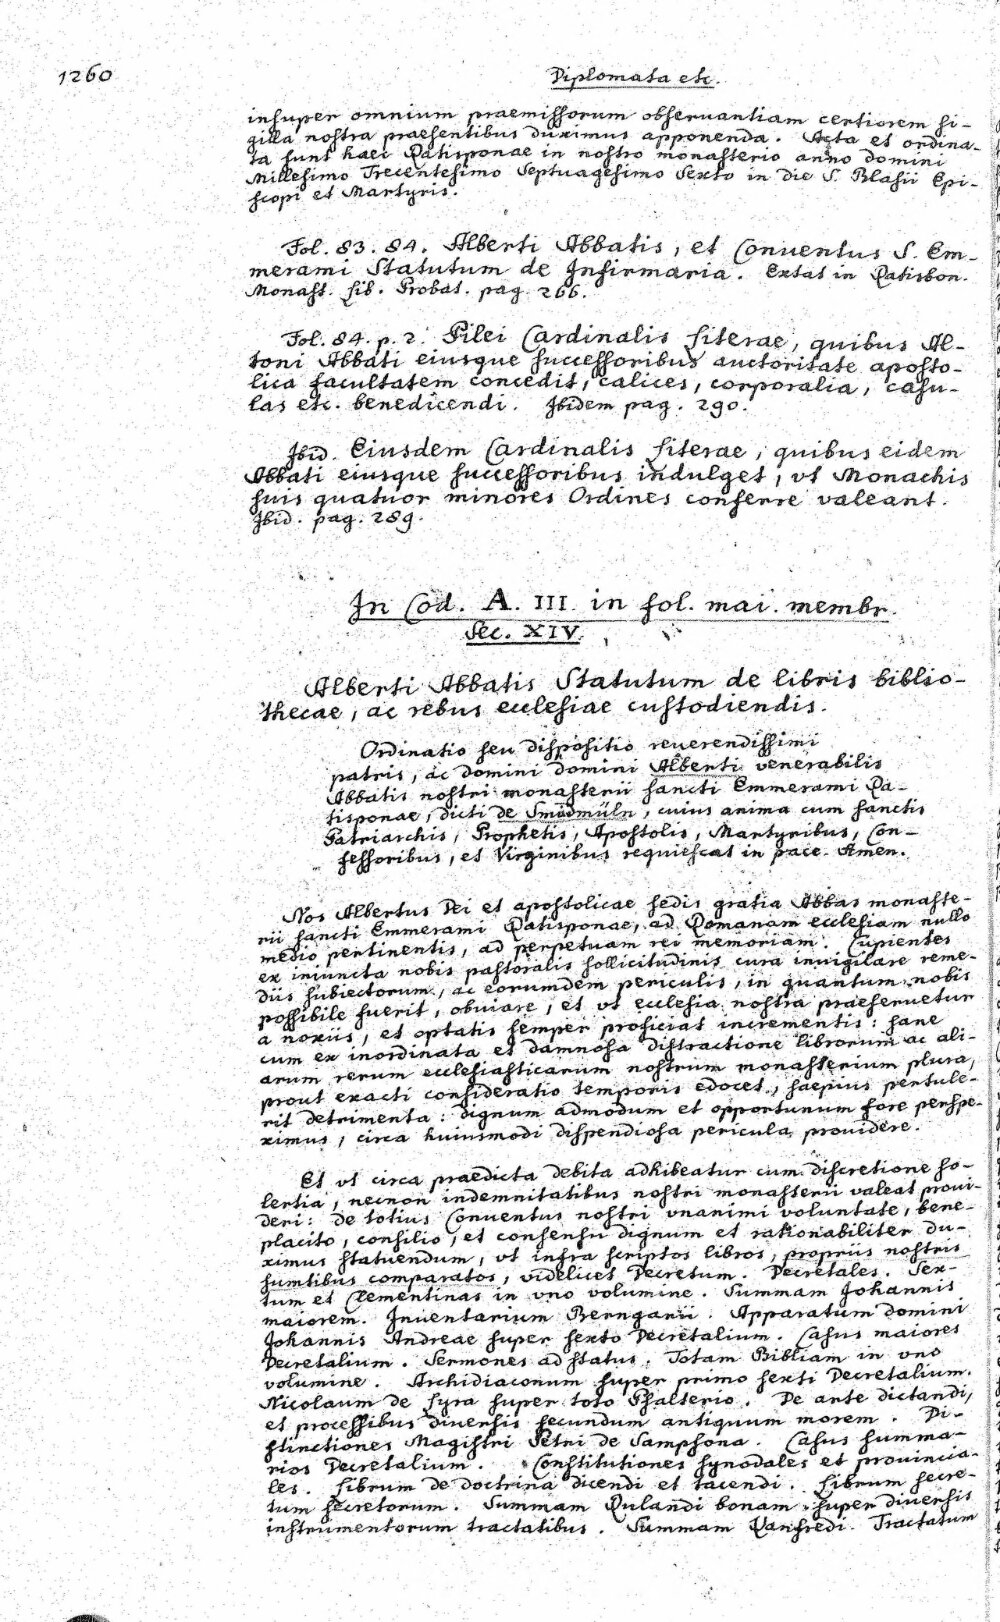 1260
Diplomata etc.
insuper omnium praemissorum obseruantiam certiorem si-
gilla nostra praesentibus duximus apponenda. Acta et ordina-
ta sunt haec Ratisponae in nostro monasterio anno domini
Millesimo Trecentesimo Septuagesimo Sexto in die S. Blasii Epi-
scopi et Martyris.
Fol. 83. 84. Alberti Abbatis, et Conuentus S. Em-
merami Statutum de Infirmaria. Extat in Ratisbon.
Monast. Lib. Probat. pag. 266.
Fol. 84. p. 2. Pilei Cardinalis Literae, quibus Al-
toni Abbati eiusque successoribus auctoritate aposto-
lica facultatem concedit, calices, corporalia, casu-
las etc. benedicendi. Ibidem pag. 290.
Ibid. Eiusdem Cardinalis Literae, quibus eidem
Abbati eiusque successoribus indulget, vt Monachis
suis quatuor minores Ordines conferre valeant.
Ibid. pag. 289.
In Cod. A. III. in fol. mai. membr.
Sec. XIV.
Alberti Abbatis Statutum de libris biblio-
thecae, ac rebus ecclesiae custodiendis.
Ordinatio seu dispositio reuerendissimi
patris, ac domini domini Alberti venerabilis
Abbatis nostri monasterii sancti Emmerami Ra-
tisponae, dicti de Smidmüln, cuius anima cum sanctis
Patriarchis, Prophetis, Apostolis, Martyribus, Con-
fessoribus, et Virginibus requiescat in pace. Amen.
Nos Albertus Dei et apostolicae sedis gratia Abbas monaste-
rii sancti Emmerami Ratisponae, ad Romanam ecclesiam nullo
medio pertinentis, ad perpetuam rei memoriam. Cupientes
ex iniuncta nobis pastoralis sollicitudinis cura inuigilare reme-
diis subiectorum, ac eorumdem periculis, in quantum nobis
possibile fuerit, obuiare, et vt ecclesia nostra praeseruetur
a noxiis, et optatis semper proficiat incrementis: sane
cum ex inordinata et damnosa distractione librorum ac ali-
arum rerum ecclesiasticarum nostrum monasterium plura,
prout exacti consideratio temporis edocet, saepius pertule-
rit detrimenta: dignum admodum et opportunum fore perspe-
ximus, circa huiusmodi dispendiosa pericula prouidere.
Et vt circa praedicta debita adhibeatur cum discretione so-
lertia, necnon indemnitatibus nostri monasterii valeat proui-
deri: de totius Conuentus nostri vnanimi voluntate, bene-
placito, consilio, et consensu dignum et rationabiliter du-
ximus statuendum, vt infra scriptos libros, propriis nostris
sumtibus comparatos, videlicet Decretum. Decretales. Sex-
tum et Clementinas in vno volumine. Summam Johannis
maiorem. Inuentarium Berngarii. Apparatum domini
Johannis Andreae super sexto Decretalium. Casus maiores
Decretalium. Sermones ad status. Totam Bibliam in vno
volumine. Archidiaconum super primo sexti Decretalium.
Nicolaum de Lyra super toto Psalterio. De arte dictandi,
et processibus diuersis secundum antiquum morem. Di-
stinctiones Magistri Petri de Sampsona. Casus summa-
rios Decretalium. Constitutiones synodales et prouincia-
les. Librum de doctrina dicendi et tacendi. Librum secre-
tum secretorum. Summam Rulandi bonam super diuersis
instrumentorum tractatibus. Summam Ranfredi. Tractatum